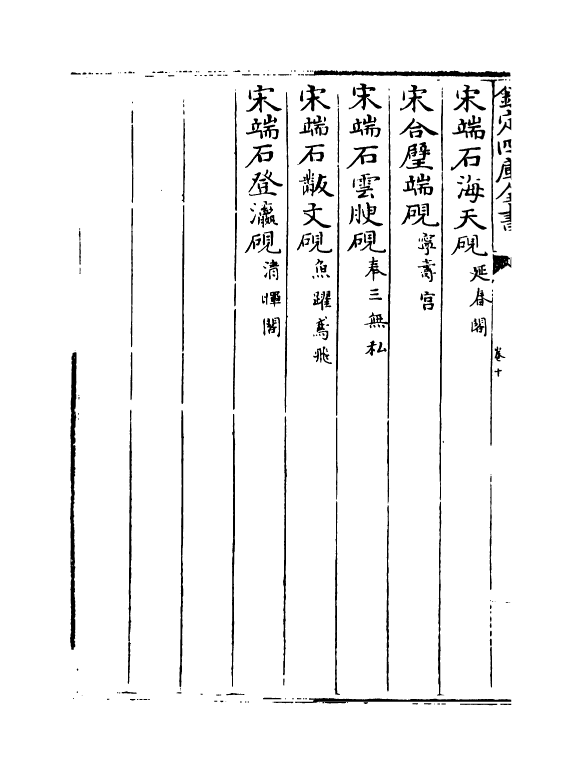 欽定四庫全書
卷十
宋端石海天硯 延春閣
宋合璧端硯 寧壽宫
宋端石雲腴硯 奉三無私
宋端石黻文硯 魚躍鳶飛
宋端石登瀛硯 清暉閣